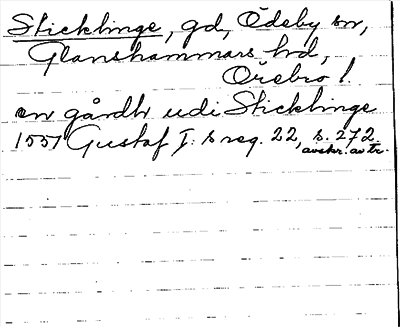 Sticklinge, gd, Ödeby sn,
Glanshammars hd,
Örebro l.
en gårdh udi Sticklinge
1551 Gustaf I:s reg. 22, s. 272.
avskr. av tr.